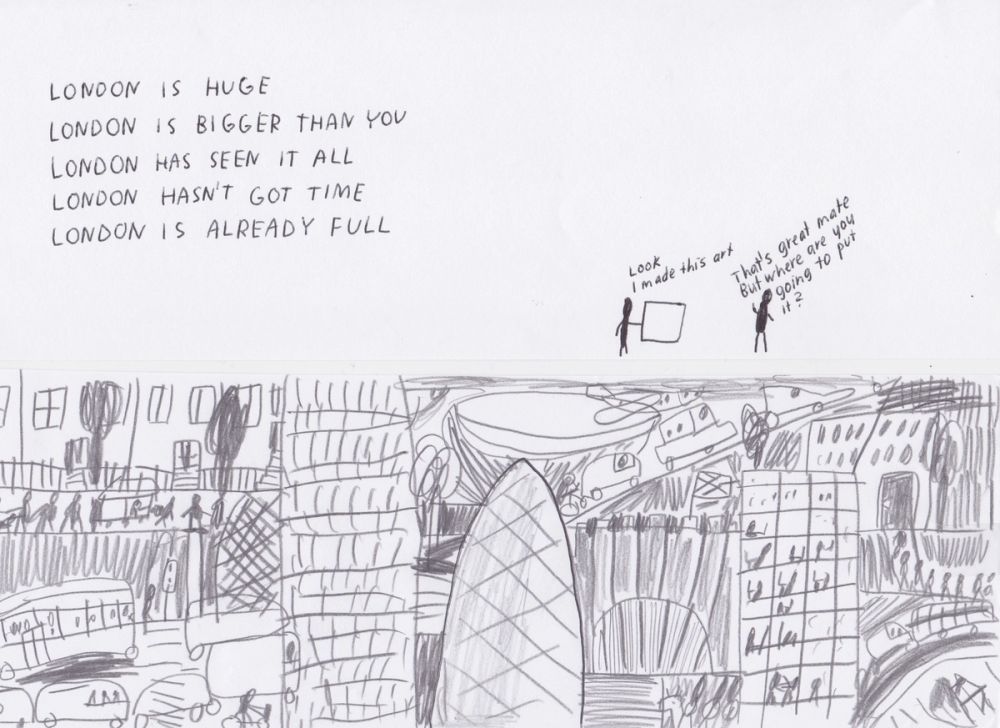 LONDON IS HUGE
LONDON IS BIGGER THAN YOU
LONDON HAS SEEN IT ALL
LONDON HASN'T GOT TIME
LONDON IS ALREADY FULL
Look
I made this art
That's great mate
But where are you
going to put
it?